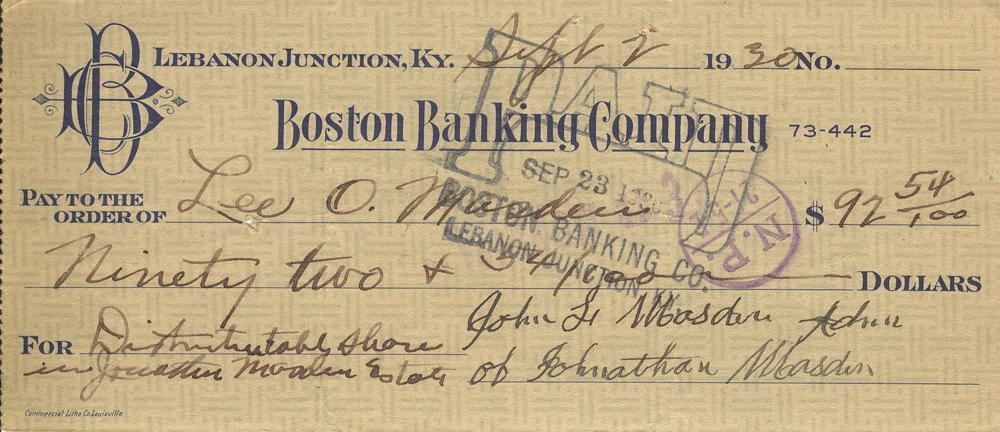 BCB
LEBANON JUNCTION, KY. Sept 2 1930 No.
BOSTON BANKING COMPANY 73-442
PAID
SEP 23 1930
BOSTON BANKING CO.
LEBANON JUNCTION, KY.
PAY TO THE ORDER OF Lee O. Masden $92 54/100
N. P.
Ninety two & 54/100 DOLLARS
FOR Distributable share
in Jonathan Masden Estate
John L Masden Admr
of Johnathan Masden
Commercial Litho. Co. Louisville